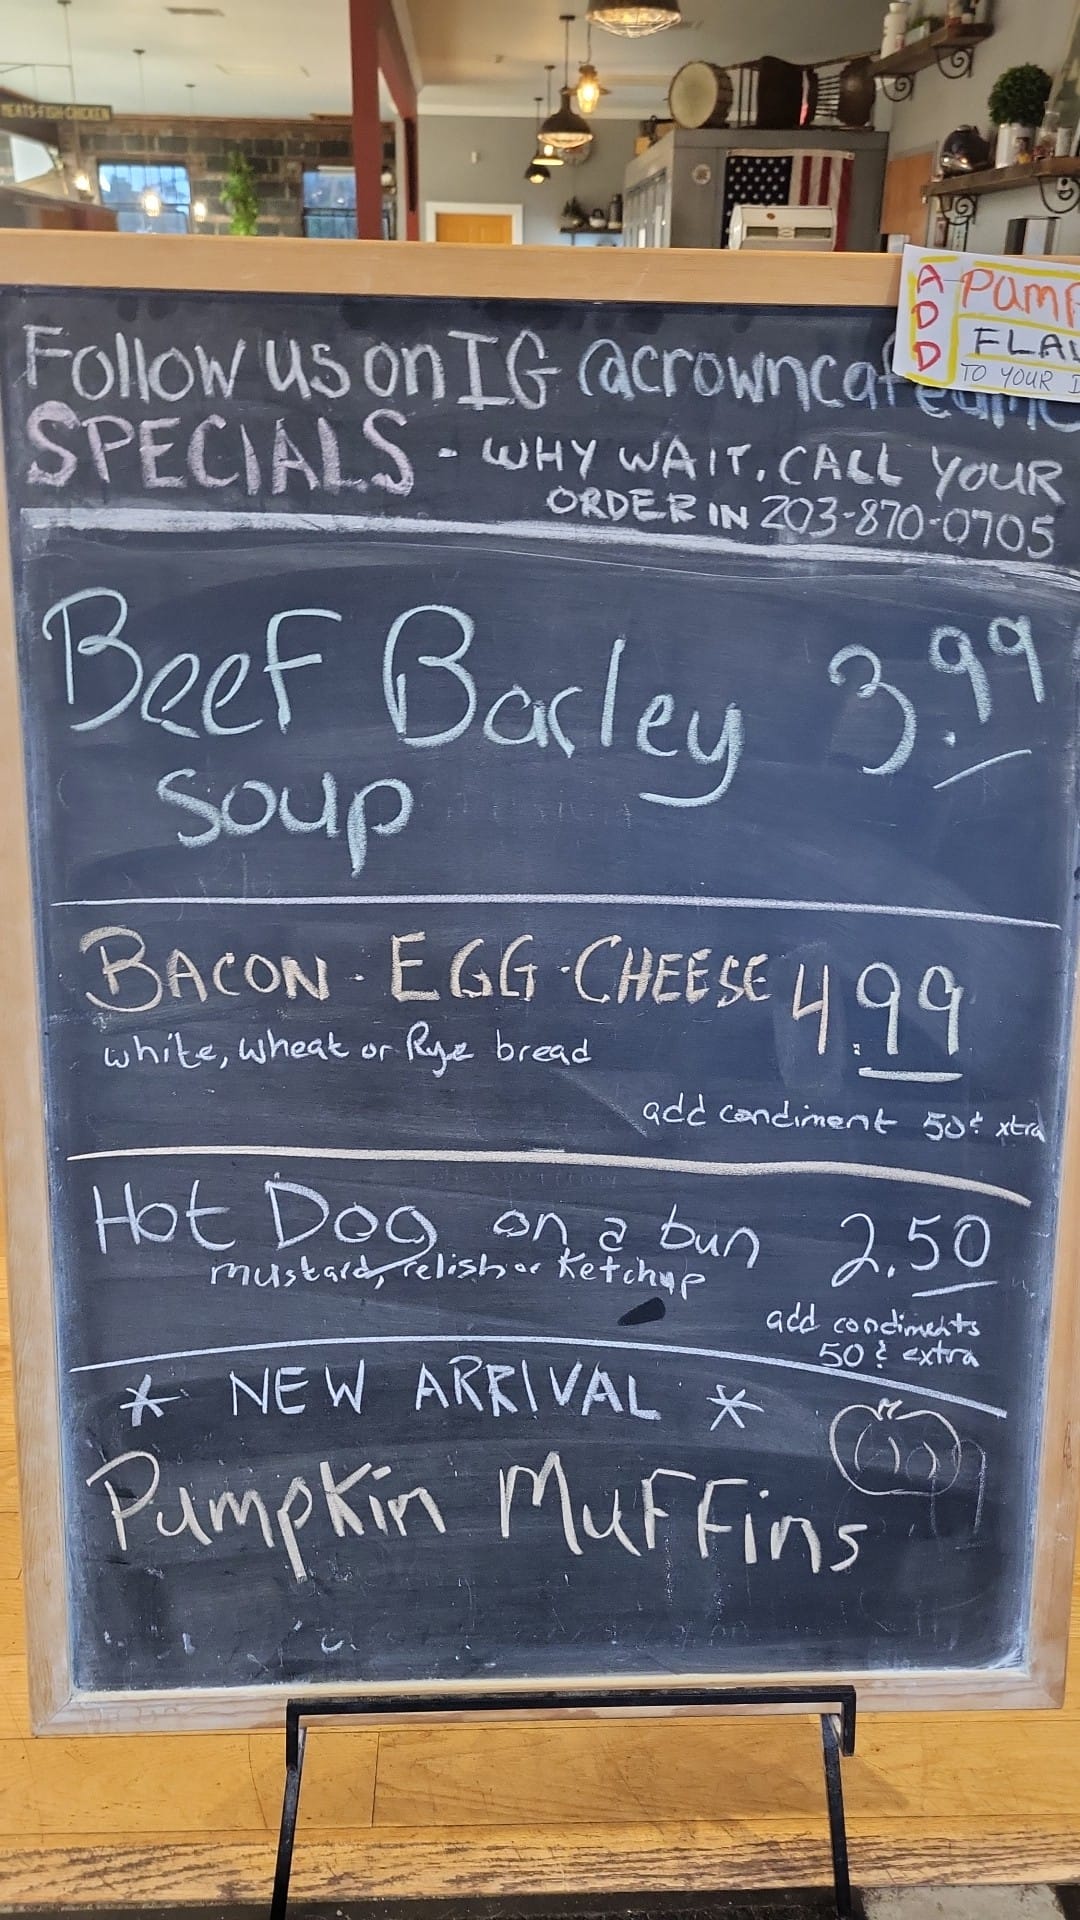 MEATS-FISH-CHICKEN
ADD
PUMP
FLAV
TO YOUR
Follow us on IG @crowncafe
SPECIALS - WHY WAIT, CALL YOUR
ORDER IN 203-870-0705
Beef Barley 3.99
soup
BACON · EGG · CHEESE 4.99
white, wheat or Rye bread
add condiment 50¢ xtra
Hot Dog on a bun 2.50
mustard, relish or Ketchup
add condiments
50¢ extra
* NEW ARRIVAL *
Pumpkin Muffins